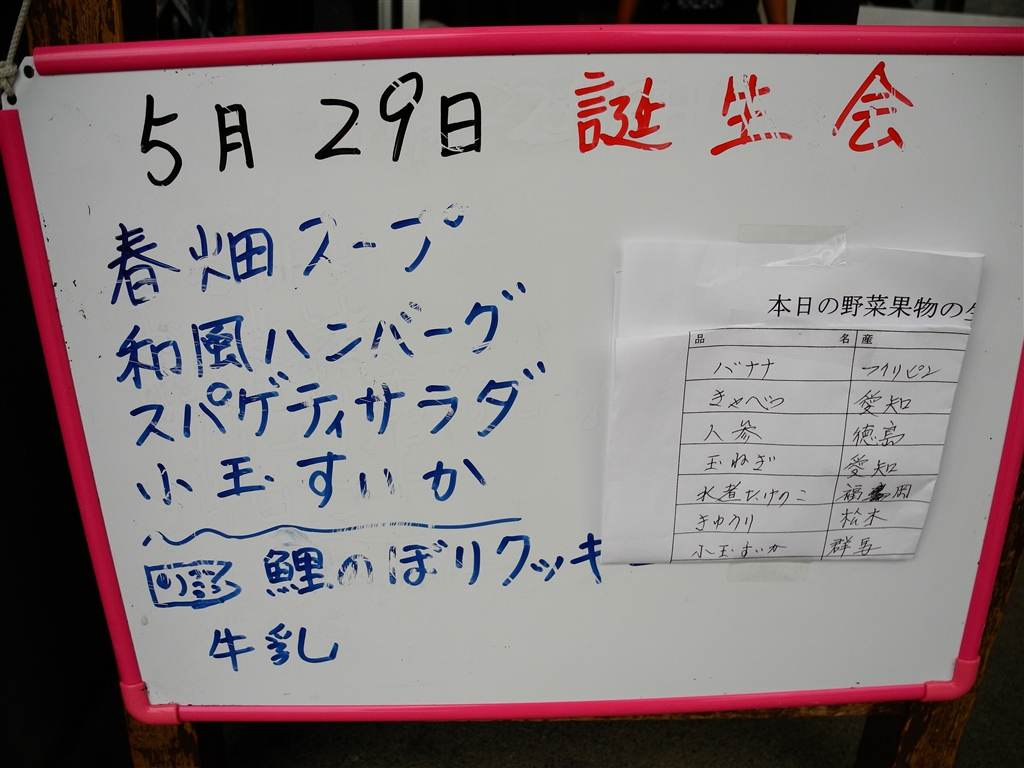 5月 29日 誕生会
春畑スープ
和風ハンバーグ
スパゲティサラダ
小玉すいか
鯉のぼりクッキー
牛乳
本日の野菜果物の
品 名 産
バナナ フィリピン
きゃべつ 愛知
人参 徳島
玉ねぎ 愛知
水煮たけのこ 福岡
きゅうり
小玉すいか 群馬